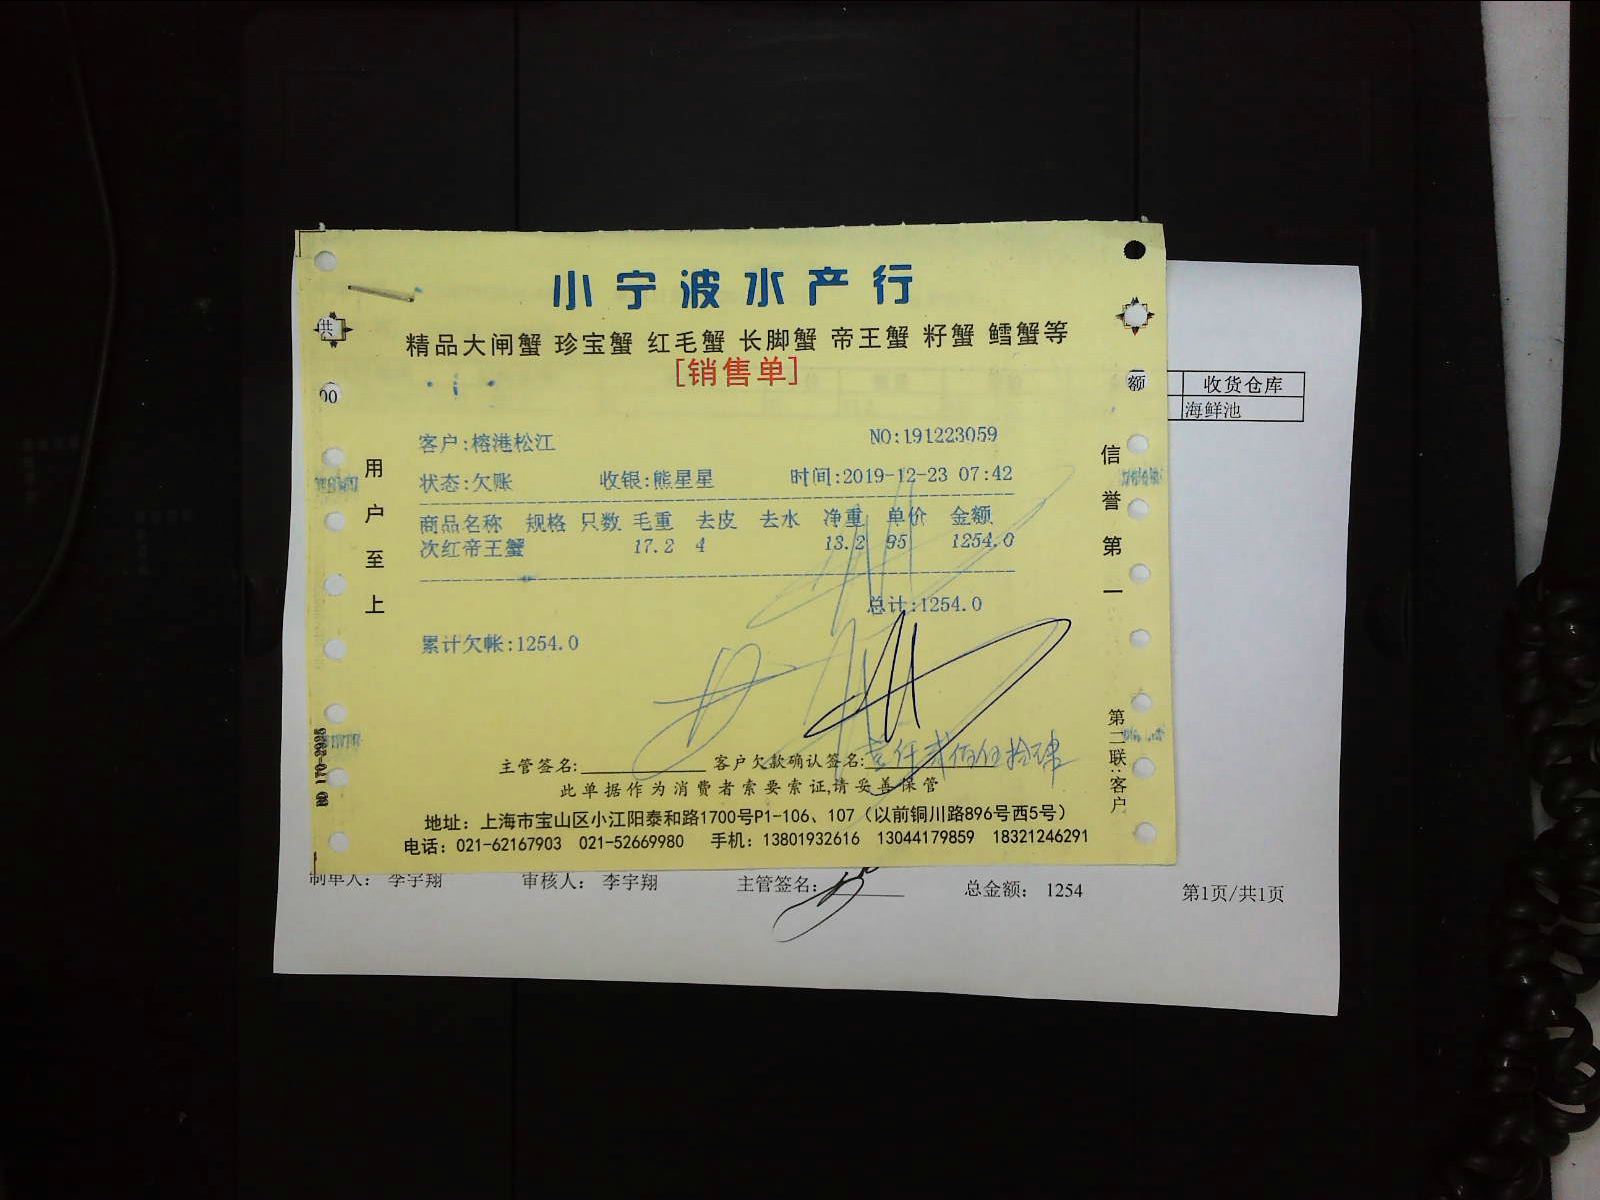 小宁波水产行
精品大闸蟹 珍宝蟹 红毛蟹 长脚蟹 帝王蟹 籽蟹 鳕蟹等
[销售单]
共
00
额
收货仓库
海鲜池
客户:榕港松江
NO:191223059
状态:欠账 收银:熊星星 时间:2019-12-23 07:42
商品名称 规格 只数 毛重 去皮 去水 净重 单价 金额
次红帝王蟹 17.2 4 13.2 95 1254.0
总计:1254.0
累计欠帐:1254.0
用户至上
信誉第一
第二联:客户
主管签名: 客户欠款确认签名: 壹仟贰佰伍拾肆
此单据作为消费者索要索证,请妥善保管
地址：上海市宝山区小江阳泰和路1700号P1-106、107（以前铜川路896号西5号）
电话：021-62167903 021-52669980 手机：13801932616 13044179859 18321246291
制单人： 李宇翔 审核人： 李宇翔 主管签名: 总金额： 1254 第1页/共1页